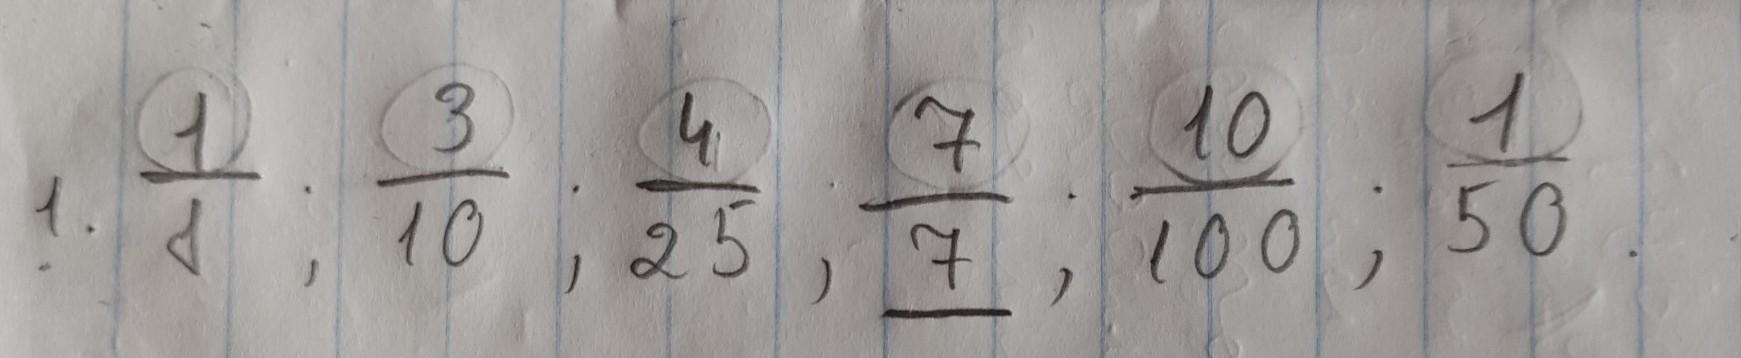 1. 1/8; 3/10; 4/25; 7/7; 10/100; 1/50.